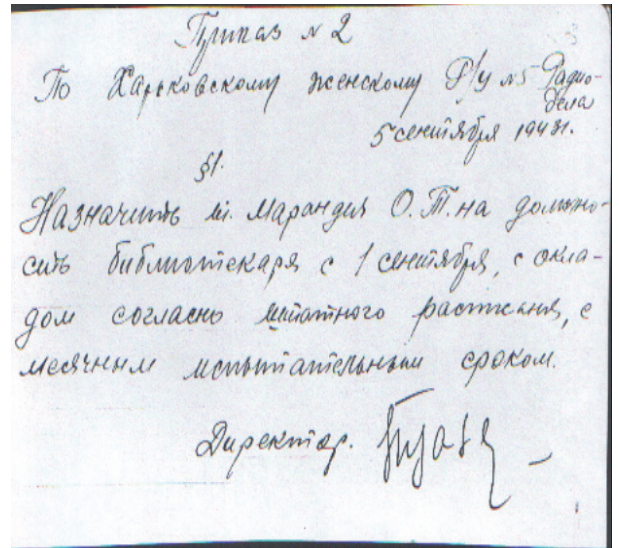 Приказ № 2
По Харьковскому женскому Р/У №5 Радио-
дела
5 сентября 194
§1.
Назначить т. Марандич О.Т. на должно-
сить библиотекаря с 1 сентября, с окла-
дом согласно штатного растисания, с
месячным испытательным сроком.
Директор.